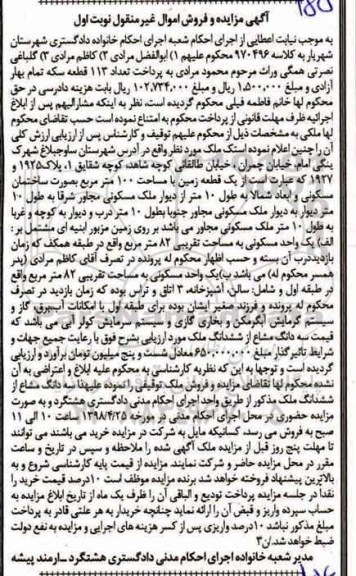 آگهی مزایده و فروش اموال غیرمنقول نوبت اول
به موجب نیابت اعطایی از اجرای احکام شعبه اجرای احکام خانواده دادگستری شهرستان
شهریار به کلاسه ۹۷۰۴۹۶ محکوم علیهم ۱) ابوالفضل مرادی ۲) کاظم مرادی ۳) گلباغی
نصرتی همگی وراث مرحوم محمود مرادی به پرداخت تعداد ۱۱۳ قطعه سکه تمام بهار
آزادی و مبلغ ۱,۵۰۰,۰۰۰ ریال و مبلغ ۱۰۲,۷۳۴,۰۰۰ ریال بابت هزینه دادرسی در حق
محکوم لها خانم فاطمه فیلی محکوم گردیده است، نظر به اینکه مشارالیهم پس از ابلاغ
اجرائیه ظرف مهلت قانونی از پرداخت محکوم به امتناع نموده است حسب تقاضای محکوم
لها ملکی به مشخصات ذیل از محکوم علیهم توقیف و کارشناس پس از ارزیابی ارزش کلی
آن را چنین اعلام نموده استک ملک مورد نظر واقع در آدرس شهرستان ساوجبلاغ شهرک
بنگی امام، خیابان چمران، خیابان طالقانی کوچه شاهد، کوچه شقایق ۱، پلاک ۱۹۲۵ و
۱۹۲۷ که عبارت است از یک قطعه زمین با مساحت ۱۰۰ متر مربع بصورت ساختمان
مسکونی و ابعاد شمالا به طول ۱۰ متر از دیوار ملک مسکونی مجاور شرقا به طول ۱۰
متر دیوار به دیوار ملک مسکونی مجاور جنوبا بطول ۱۰ متر درب و دیوار به کوچه و غربا
به طول ۱۰ متر ملک مسکونی مجاور می باشد بر روی زمین مزبور ابنیه ای مشتمل بر :
الف) یک واحد مسکونی به مساحت تقریبی ۸۲ متر مربع واقع در طبقه همکف که زمان
بازدید درب آن بسته و حسب اظهار محکوم له پرونده در تصرف آقای کاظم مرادی (پدر
همسر محکوم له) می باشد ب) یک واحد مسکونی به مساحت تقریبی ۸۲ متر مربع واقع
در طبقه اول و شامل: سالن، آشپزخانه، ۳ اتاق و تراس بوده که زمان بازدید در تصرف
محکوم له پرونده و فرزند صغیر ایشان بوده برای طبقه اول با امکانات آب، برق، گاز و
سیستم گرمایش آبگرمکن و بخاری گازی و سیستم سرمایش کولر آبی می باشد که
قیمت سه دانگ مشاع از ششدانگ ملک مورد ارزیابی بشرح فوق با رعایت جمیع جهات و
شرایط تاثیرگذار مبلغ ۶۵۰,۰۰۰,۰۰۰ معادل شست و پنج میلیون تومان برآورد و ارزیابی
گردیده است و توجها به این که نظریه کارشناسی به محکوم علیه ابلاغ و اعتراضی به آن
نشده محکوم لها تقاضای مزایده و فروش ملک توقیفی را نموده علیهذا سه دانگ مشاع از
ششدانگ ملک مذکور از طریق واحد اجرای احکام مدنی دادگستری هشتگرد و به صورت
مزایده حضوری در محل اجرای احکام مدنی در مورخه ۱۳۹۸/۴/۲۵ ساعت ۱۰ الی ۱۱
صبح به فروش می رسد کسانیکه مایل به شرکت در مزایده خرید می باشند می توانند
تا مهلت پنج روز قبل از مزایده ملک آگهی شده را ملاحظه و سپس در تاریخ و ساعت
مقرر در محل مزایده حاضر و شرکت نمایند. مزایده از قیمت پایه کارشناسی شروع و به
بالاترین پیشنهاد فروخته خواهد شد برنده مزایده موظف است ۱۰ درصد قیمت خرید را
نقدا در جلسه مزایده پرداخت تودیع و الباقی آن را ظرف یک ماه از تاریخ ابلاغ مزایده به
حساب سپرده واریز و قبض آن را ارائه نماید چنانچه خریدار به هر علتی قادر به پرداخت
مبلغ مذکور نباشد ۱۰ درصد واریزی پس از کسر هزینه های اجرایی و مزایده به نفع دولت
ضبط خواهد شد.ن۳
مدیر شعبه خانواده اجرای احکام مدنی دادگستری هشتگرد ـ ارمند پیشه